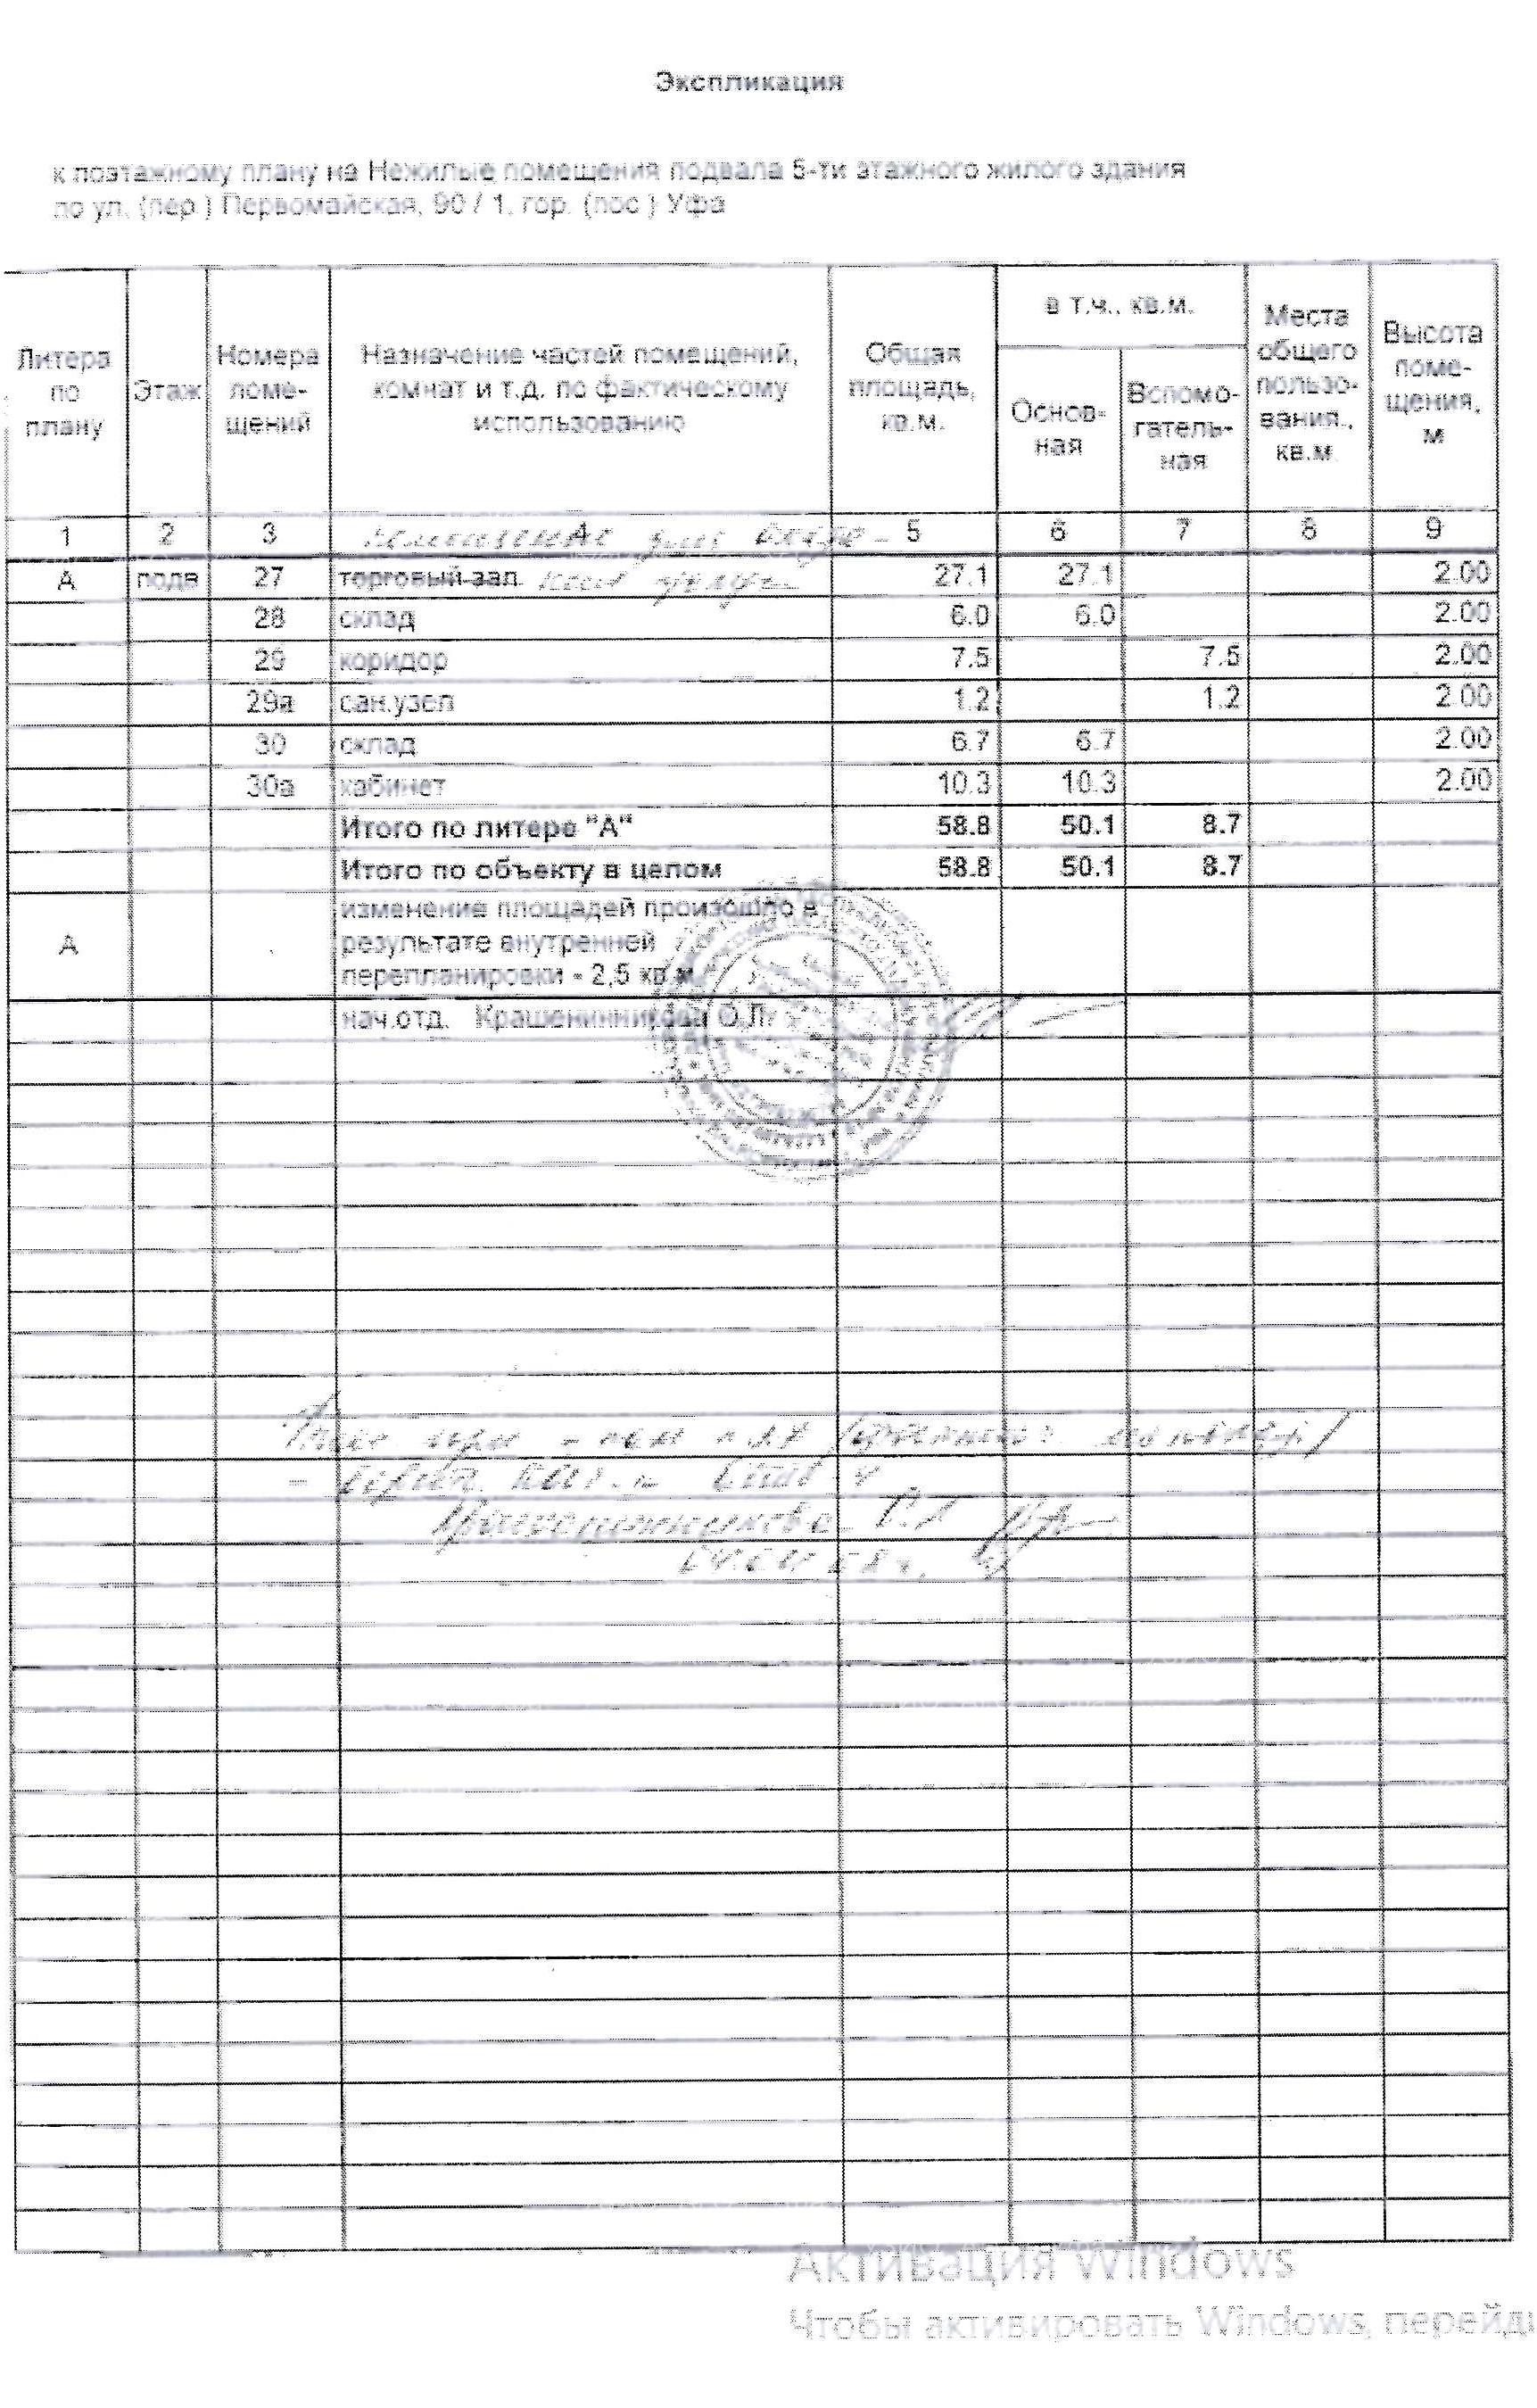 Экспликация
к поэтажному плану на Нежилые помещения подвала 5-ти этажного жилого здания
по ул. (пер.) Первомайская, 90 / 1, гор. (пос.) Уфа
Литера по плану Этаж Номера поме-щений Назначение частей помещений, комнат и т.д. по фактическому использованию Общая площадь, кв.м. в т.ч., кв.м. Основ-ная Вспомо-гатель-ная Места общего пользо-вания., кв.м. Высота поме-щения, м
1 2 3 4 5 6 7 8 9
А подв 27 торговый зал 27.1 27.1 2.00
28 склад 6.0 6.0 2.00
29 коридор 7.5 7.5 2.00
29а сан.узел 1.2 1.2 2.00
30 склад 6.7 6.7 2.00
30а кабинет 10.3 10.3 2.00
Итого по литере "А" 58.8 50.1 8.7
Итого по объекту в целом 58.8 50.1 8.7
изменение площадей произошло в
А результате внутренней
перепланировки - 2,5 кв.м.
нач.отд. Крашенинникова О.Л.
Крашенинникова
Активация Windows
Чтобы активировать Windows, перейди